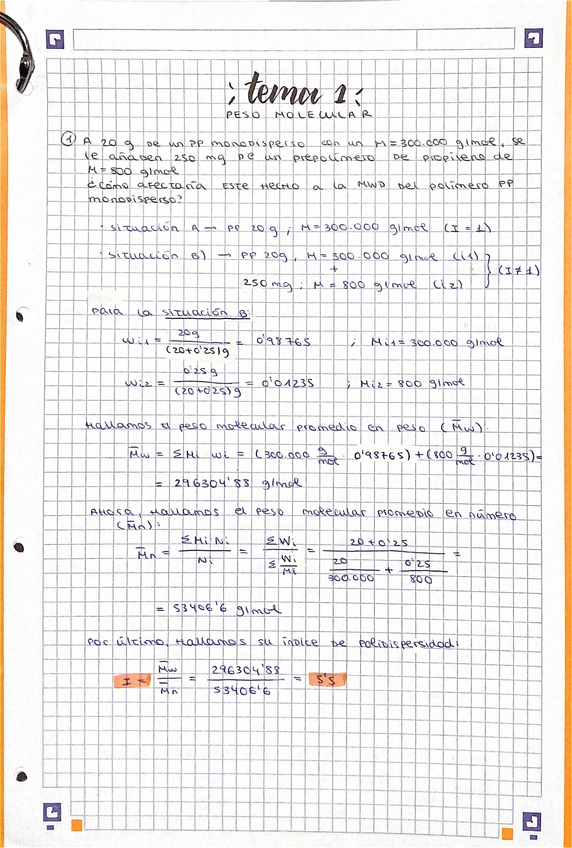 ¡tema 1:
PESO MOLECULAR
① A 20 g DE UN PP MONODISPERSO CON UN M = 300.000 g/mol, se
le añaden 250 mg DE UN PREPOLÍMERO DE PROPILENO DE
M = 800 g/mol
¿CÓMO AFECTARÍA ESTE HECHO A LA MWD DEL POLÍMERO PP
MONODISPERSO?
· SITUACIÓN A → PP 20 g ; M = 300.000 g/mol (I = 1)
· SITUACIÓN B) → PP 20g, M = 300.000 g/mol (i1)
+
250 mg ; M = 800 g/mol (i2) } (I ≠ 1)
PARA LA SITUACIÓN B:
Wi1 = 20g / (20+0'25)g = 0'98765 ; Mi1 = 300.000 g/mol
Wi2 = 0'25g / (20+0'25)g = 0'01235 ; Mi2 = 800 g/mol
HALLAMOS EL PESO MOLECULAR PROMEDIO EN PESO (M̄w):
M̄w = ΣMi Wi = (300.000 g/mol · 0'98765) + (800 g/mol · 0'01235) =
= 296304'88 g/mol
AHORA, HALLAMOS EL PESO MOLECULAR PROMEDIO EN NÚMERO
(M̄n):
M̄n = ΣMi Ni / Ni = ΣWi / Σ Wi/Mi = 20 + 0'25 / (20/300.000 + 0'25/800) =
= 53406'6 g/mol
POR ÚLTIMO, HALLAMOS SU ÍNDICE DE POLIDISPERSIDAD:
I = M̄w / M̄n = 296304'88 / 53406'6 = 5'5